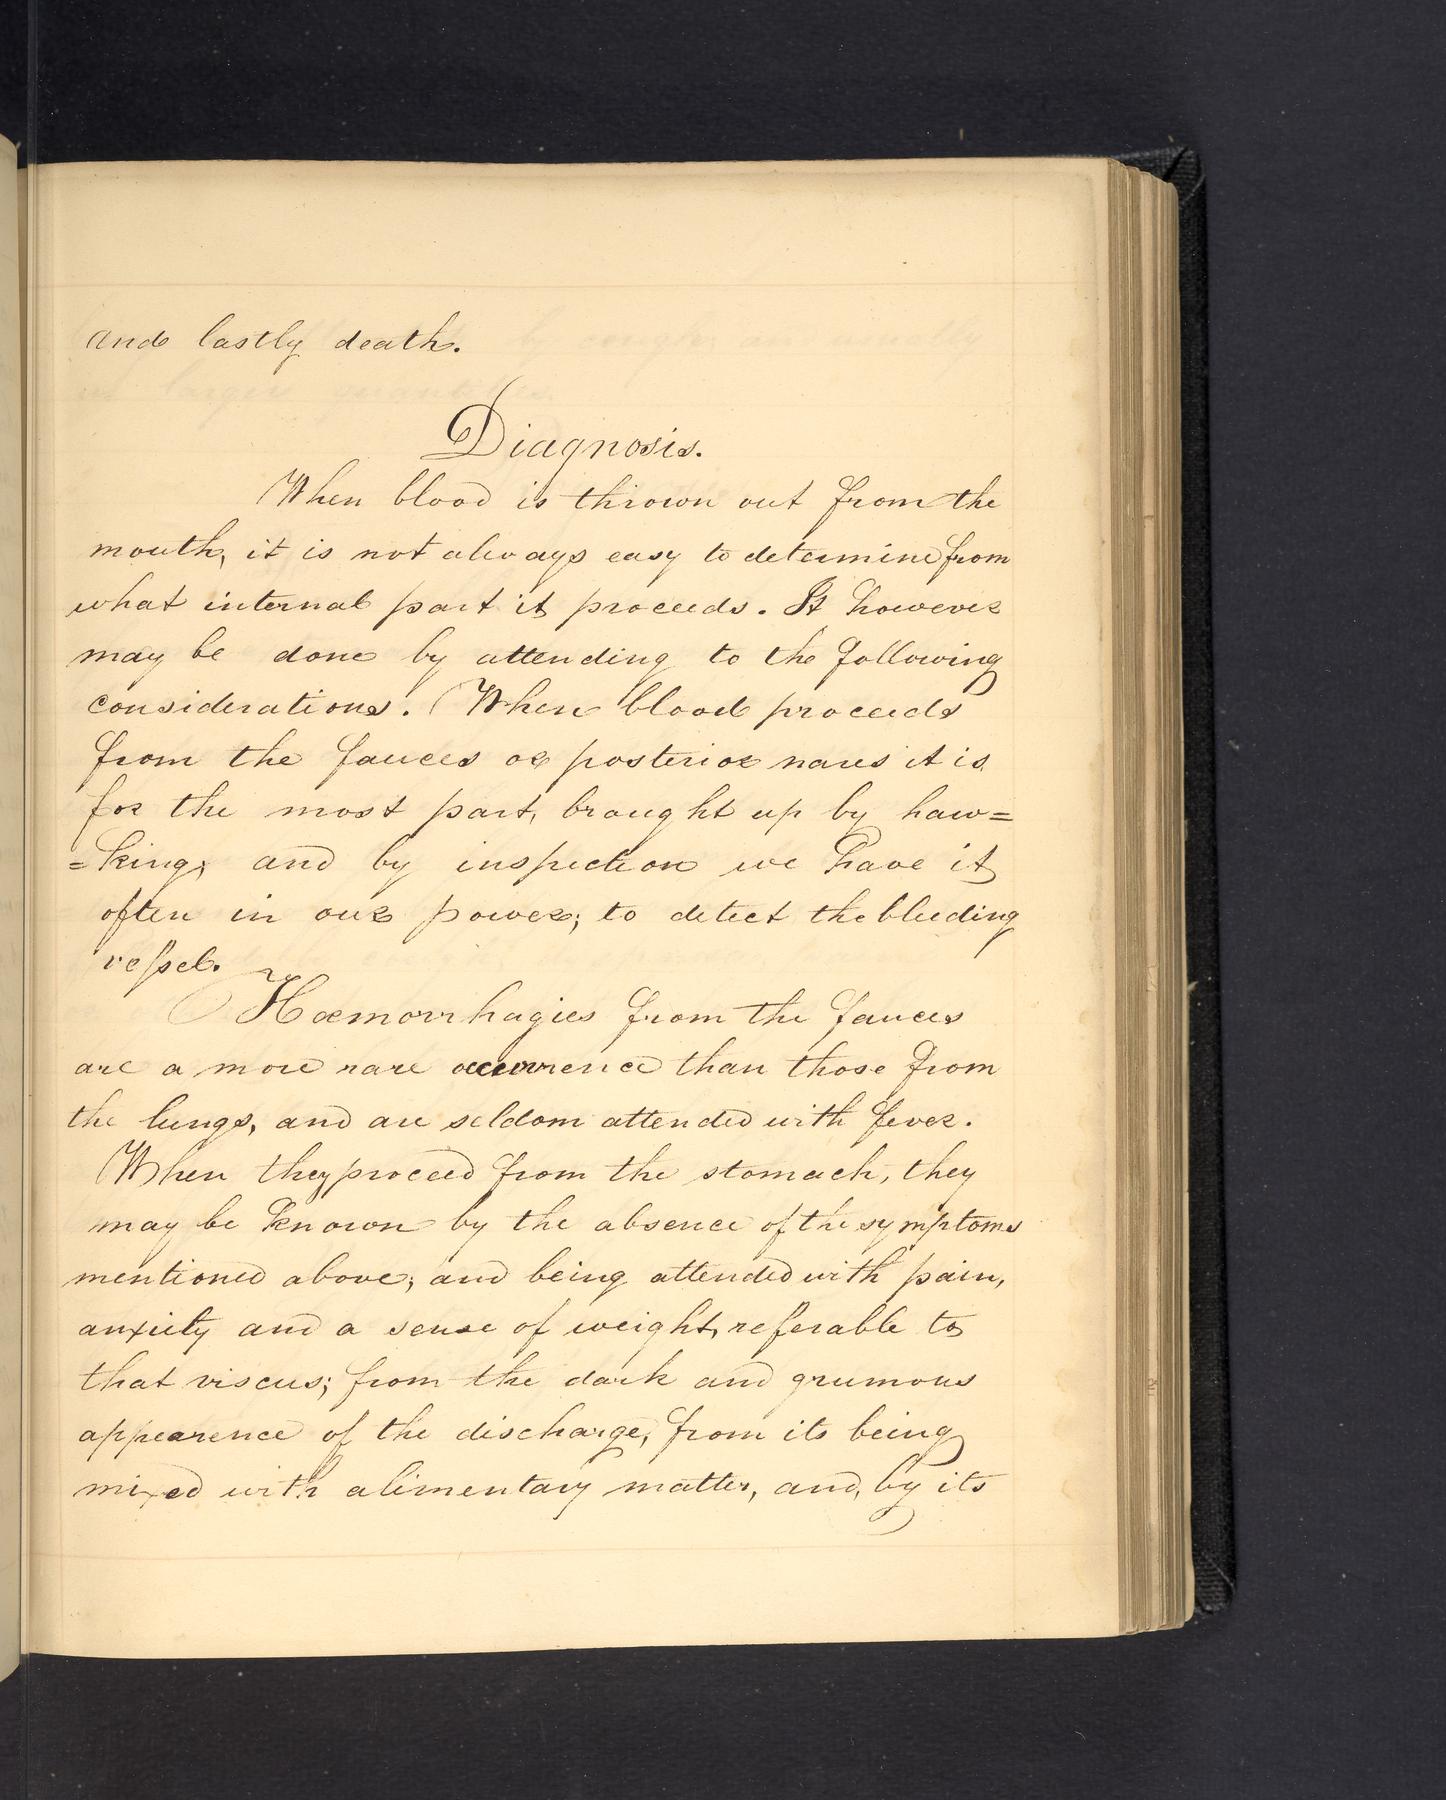 and lastly death.
Diagnosis.
When blood is thrown out from the
mouth, it is not always easy to determine from
what internal part it proceeds. It however
may be done by attending to the following
considerations. When blood proceeds
from the fauces or posterior nares it is
for the most part, brought up by haw=
=king, and by inspection we have it
often in our power; to detect the bleeding
vessel.
Hæmorrhagies from the fauces
are a more rare occurrence than those from
the lungs, and are seldom attended with fever.
When they proceed from the stomach, they
may be known by the absence of the symptoms
mentioned above; and being attended with pain,
anxiety and a sense of weight, referable to
that viscus; from the dark and grumous
appearence of the discharge, from its being
mixed with alimentary matter, and, by its